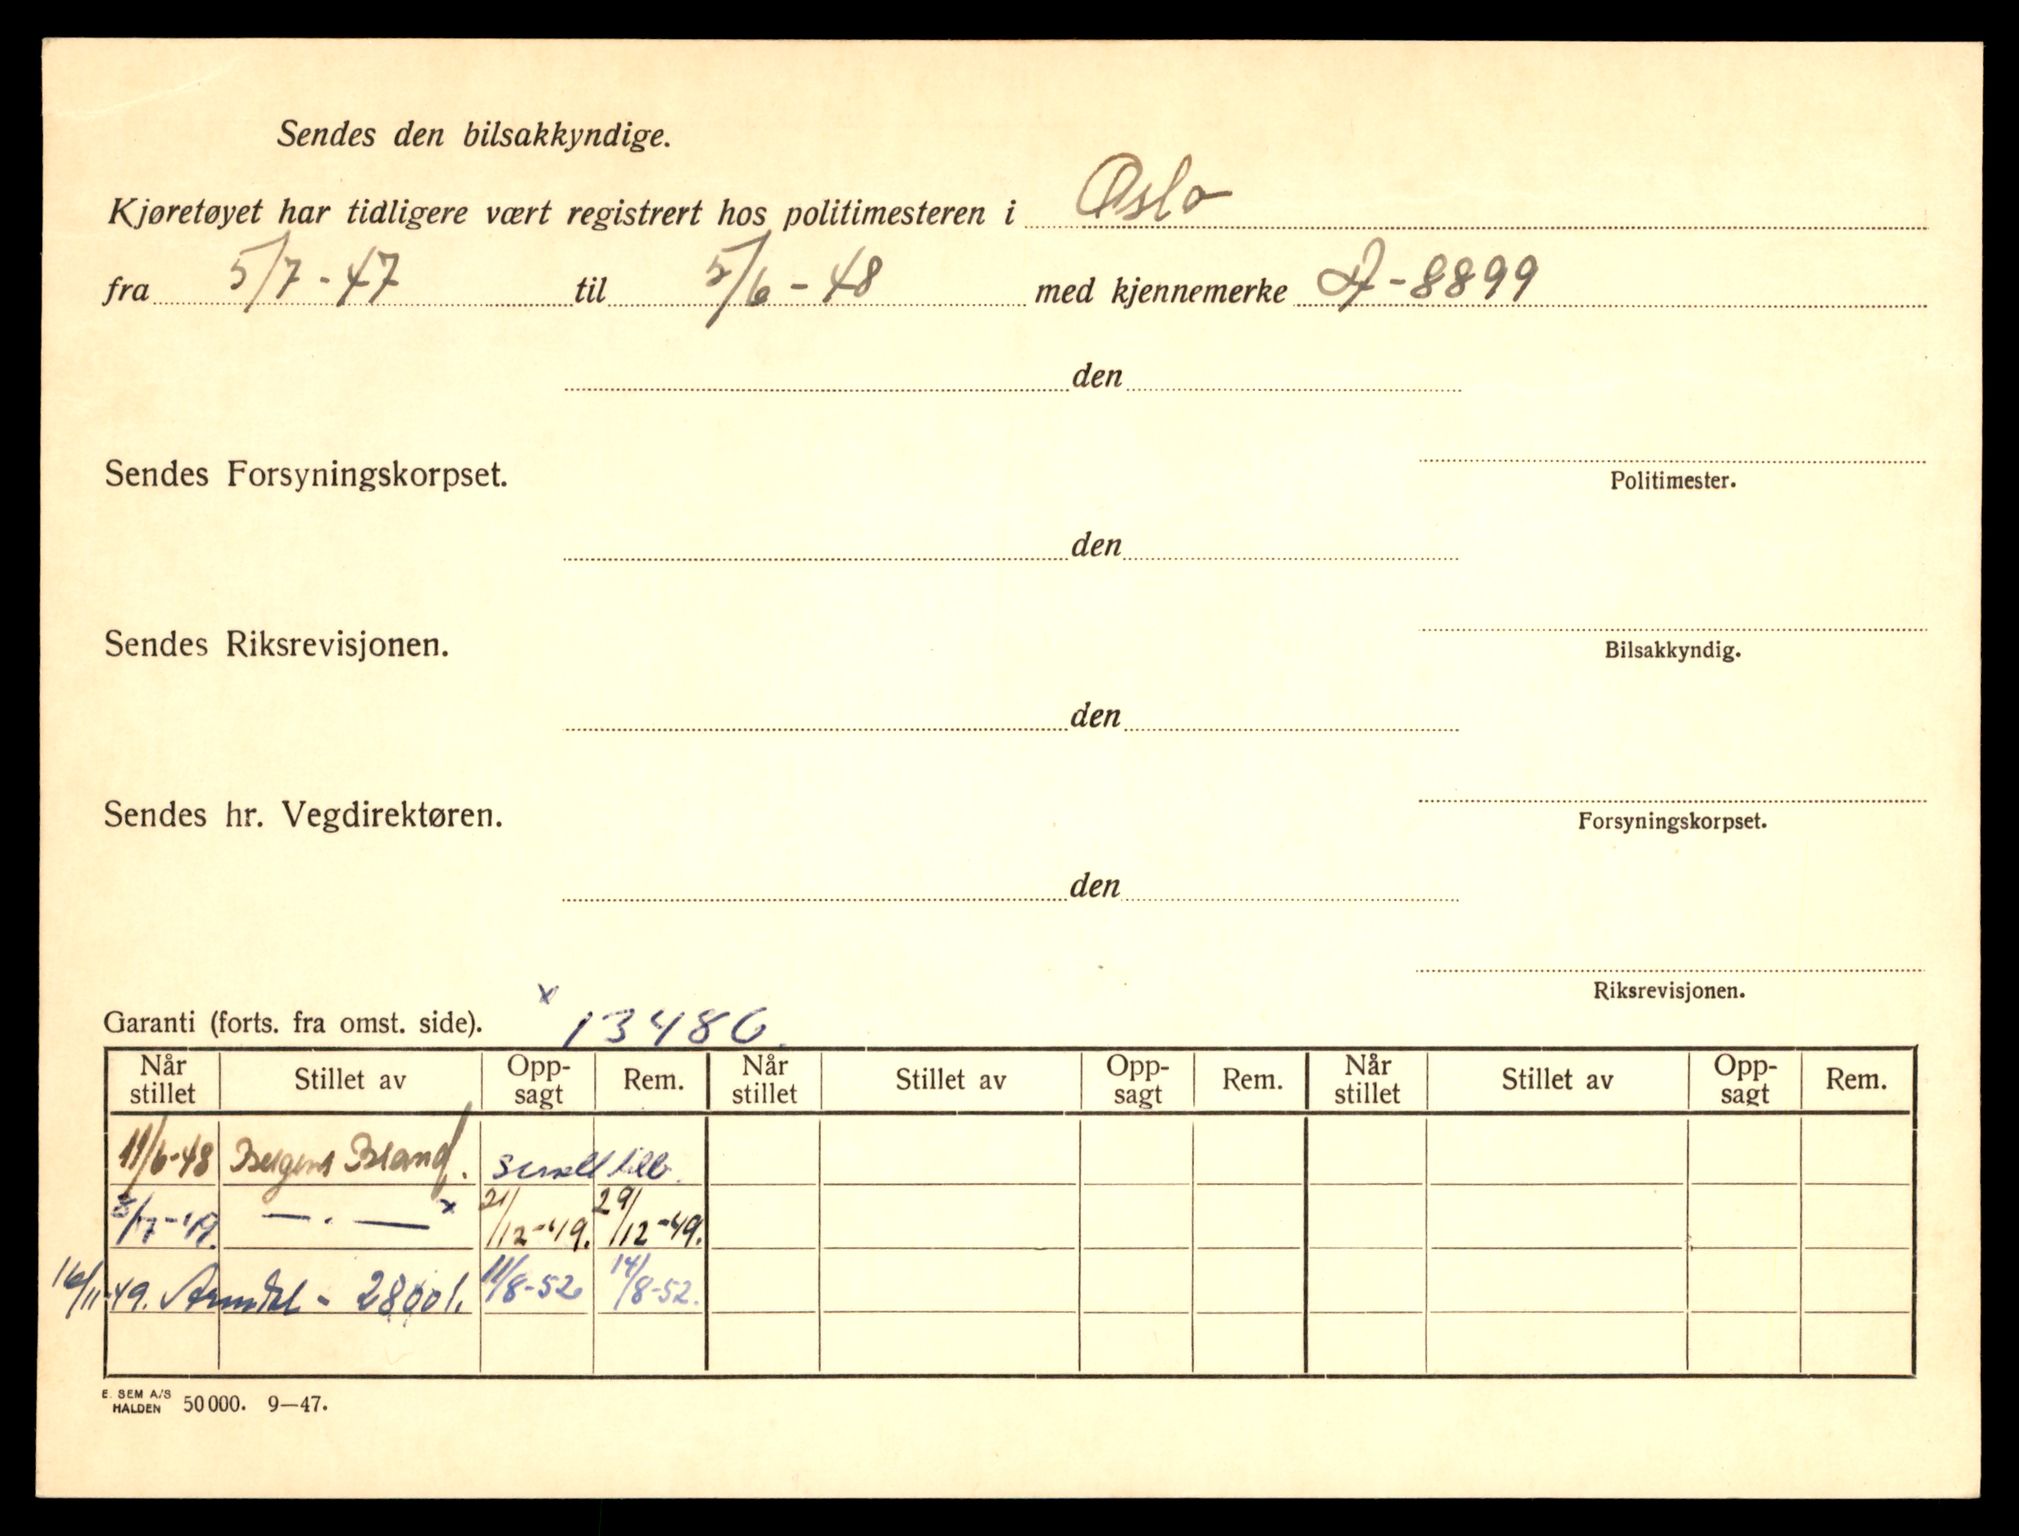 Sendes den bilsakkyndige.
Kjøretøyet har tidligere vært registrert hos politimesteren i Oslo
fra 5/7-47 til 5/6-48 med kjennemerke A-8899
den
Sendes Forsyningskorpset.
Politimester.
den
Sendes Riksrevisjonen.
Bilsakkyndig.
den
Sendes hr. Vegdirektøren.
Forsyningskorpset.
den
Riksrevisjonen.
Garanti (forts. fra omst. side). x 13486.
Når stillet Stillet av Opp-sagt Rem. Når stillet Stillet av Opp-sagt Rem. Når stillet Stillet av Opp-sagt Rem.
11/6-48 Bergens Brand.
8/7-49. — . — x 21/12-49. 29/12-49.
16/11-49. Arendal - 2800 l. 11/8-52 14/8-52.
E. SEM A/S HALDEN 50 000. 9—47.